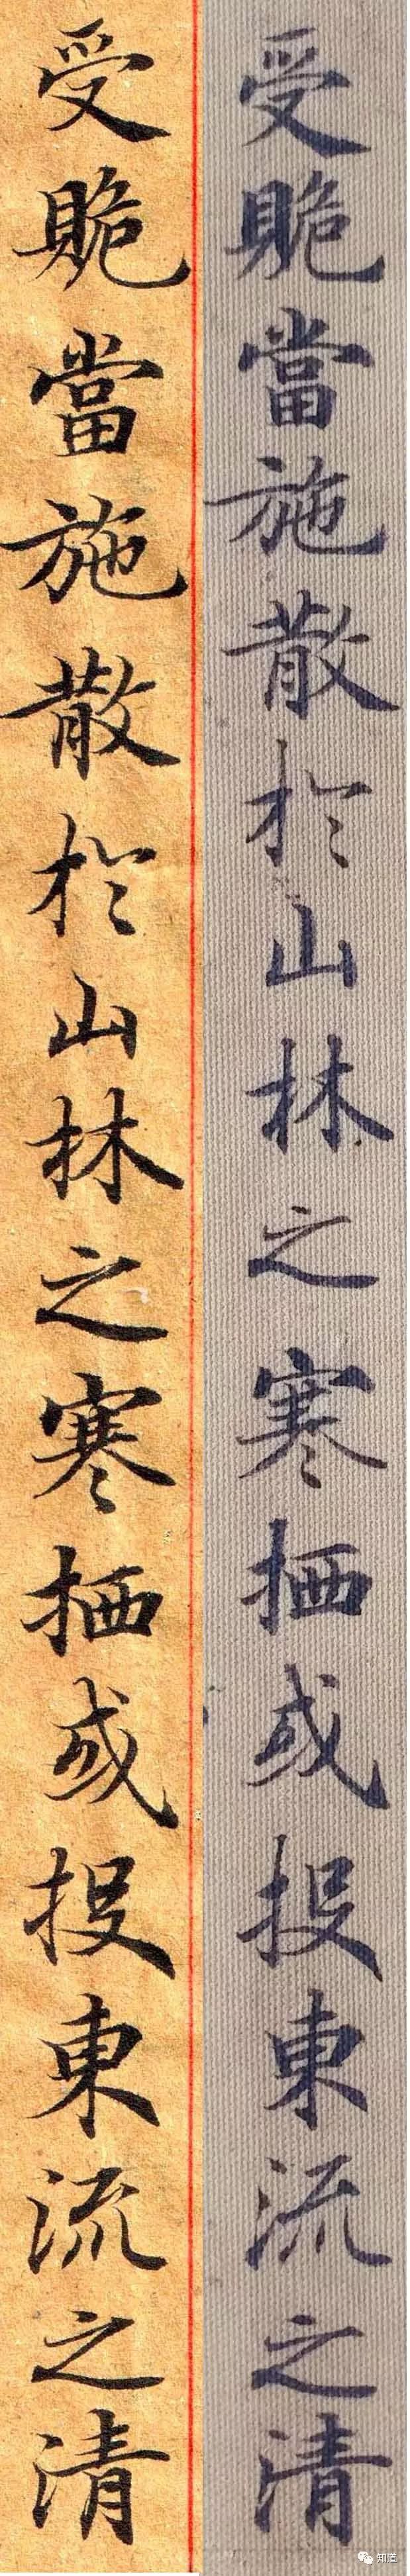 受當施散於山林之寒栖或投東流之清
受當施散於山林之寒栖或投東流之清
知道